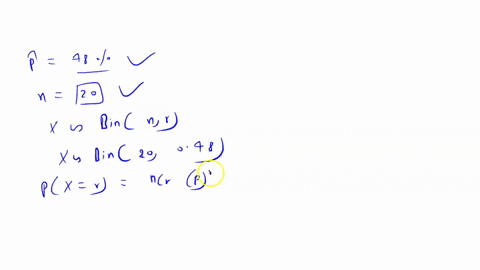 p̂ = 48 %
n = 20
X ~ Bin( n, r)
X ~ Bin( 20, 0.48)
P( X = r) = ncr (p)^r